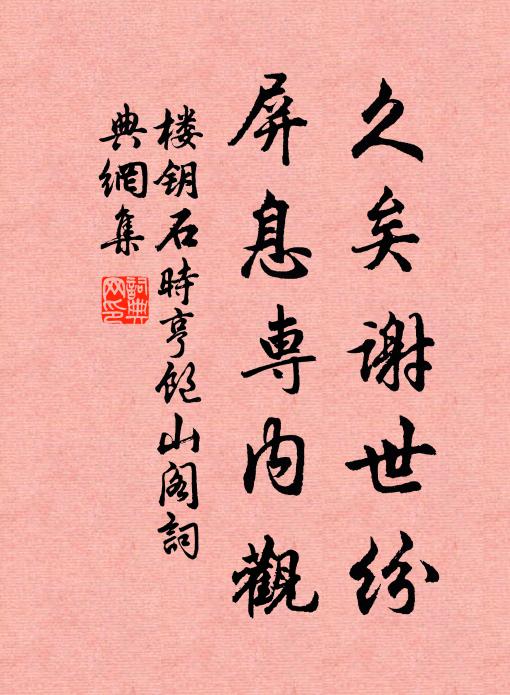 久矣谢世纷
屏息専内觀
楼钥石時亨飽山阁詞
典網集
詞典
网印